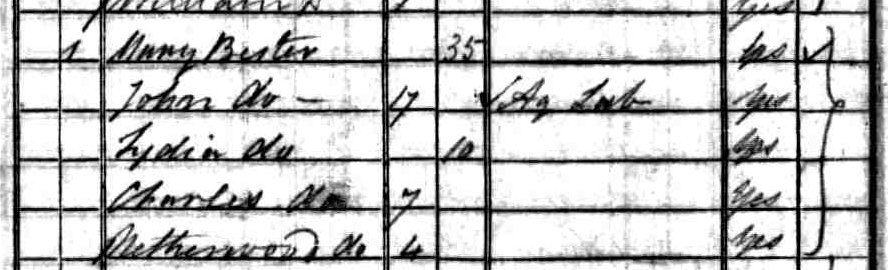 yes
1 Mary Bester 35 yes
John do - 17 Ag Lab yes
Lydia do 10 yes
Charles do 7 yes
Netherwood do 4 yes